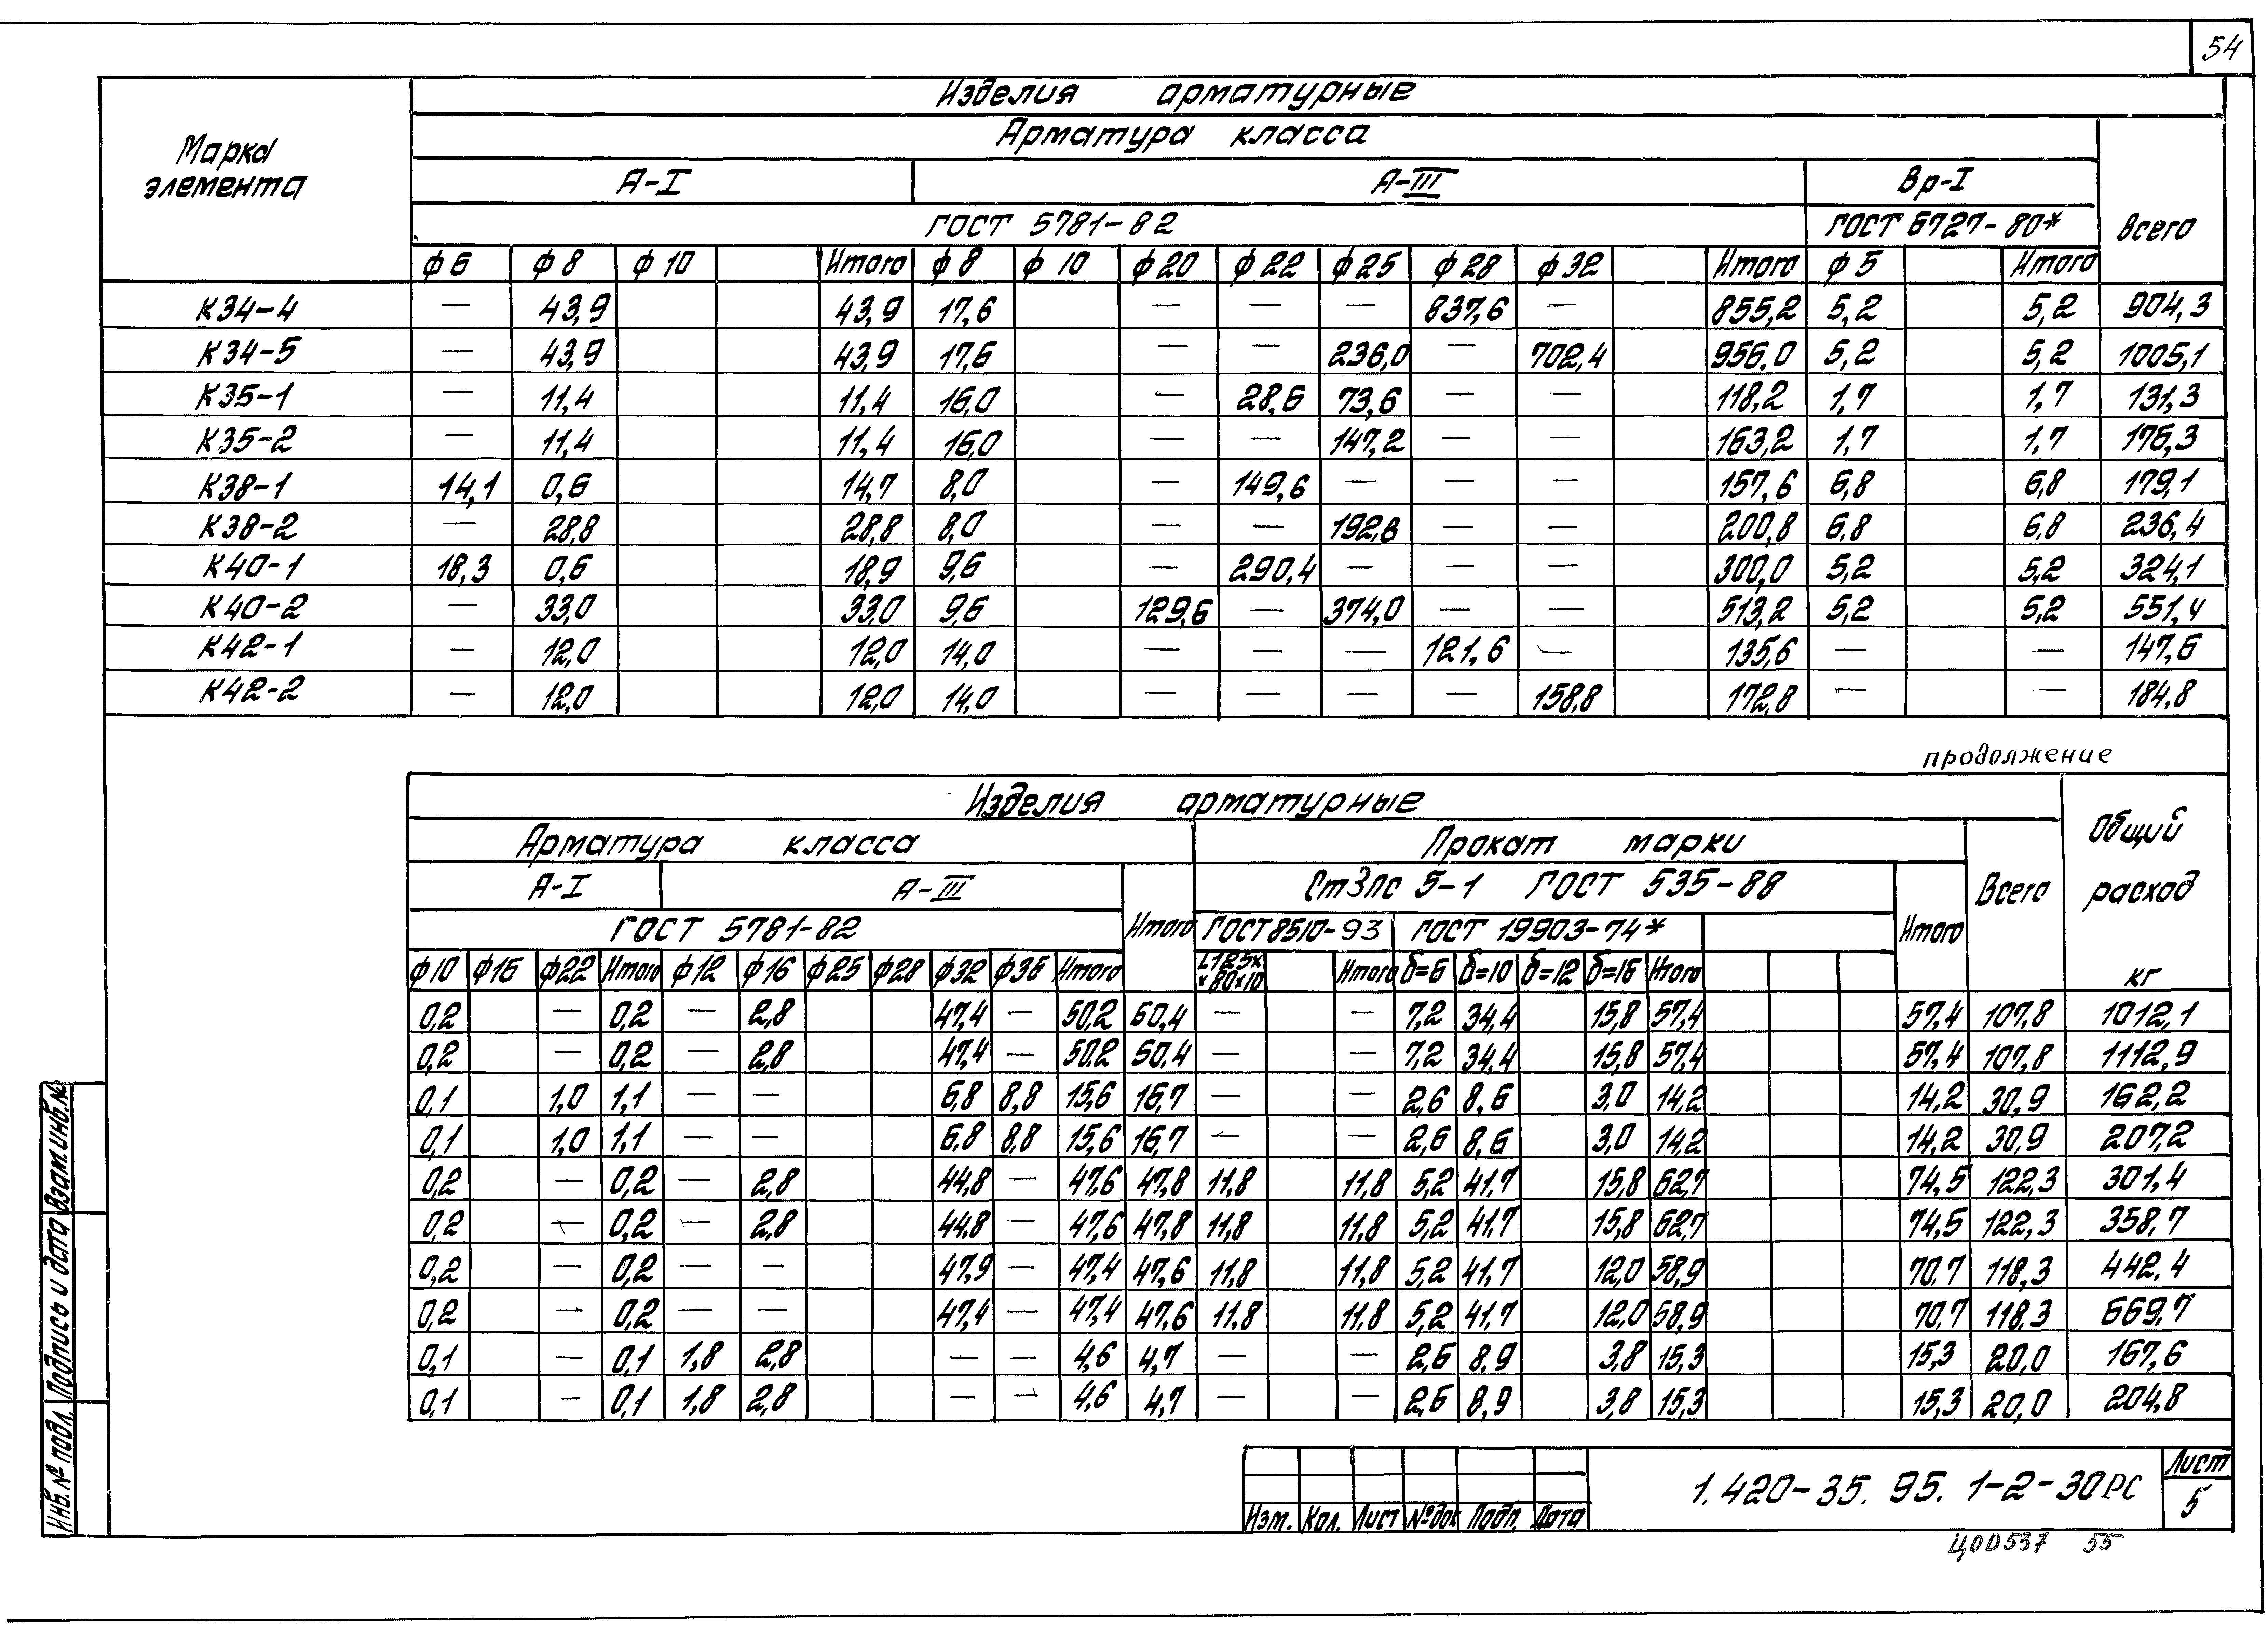 54
Изделия арматурные
Марка элемента
Арматура класса
Всего
А-I А-III Вр-I
ГОСТ 5781-82 ГОСТ 6727-80*
ф6 ф8 ф10 Итого ф8 ф10 ф20 ф22 ф25 ф28 ф32 Итого ф5 Итого
К34-4 — 43,9 43,9 17,6 — — — 837,6 — 855,2 5,2 5,2 904,3
К34-5 — 43,9 43,9 17,6 — — 236,0 — 702,4 956,0 5,2 5,2 1005,1
К35-1 — 11,4 11,4 16,0 — 28,6 73,6 — — 118,2 1,7 1,7 131,3
К35-2 — 11,4 11,4 16,0 — — 147,2 — — 163,2 1,7 1,7 176,3
К38-1 14,1 0,6 14,7 8,0 — 149,6 — — — 157,6 6,8 6,8 179,1
К38-2 — 28,8 28,8 8,0 — — 192,8 — — 200,8 6,8 6,8 236,4
К40-1 18,3 0,6 18,9 9,6 — 290,4 — — — 300,0 5,2 5,2 324,1
К40-2 — 33,0 33,0 9,6 129,6 — 374,0 — — 513,2 5,2 5,2 551,4
К42-1 — 12,0 12,0 14,0 — — — 121,6 — 135,6 — — 147,6
К42-2 — 12,0 12,0 14,0 — — — — 158,8 172,8 — — 184,8
продолжение
Изделия арматурные
Общий расход кг
Арматура класса Прокат марки
Всего
А-I А-III Ст3пс 5-1 ГОСТ 535-88
ГОСТ 5781-82 Итого ГОСТ 8510-93 ГОСТ 19903-74* Итого
ф10 ф16 ф22 Итого ф12 ф16 ф25 ф28 ф32 ф36 Итого L125x x80x10 Итого δ=6 δ=10 δ=12 δ=16 Итого
0,2 — 0,2 — 2,8 47,4 — 50,2 50,4 — — 7,2 34,4 15,8 57,4 57,4 107,8 1012,1
0,2 — 0,2 — 2,8 47,4 — 50,2 50,4 — — 7,2 34,4 15,8 57,4 57,4 107,8 1112,9
0,1 1,0 1,1 — — 6,8 8,8 15,6 16,7 — — 2,6 8,6 3,0 14,2 14,2 30,9 162,2
0,1 1,0 1,1 — — 6,8 8,8 15,6 16,7 — — 2,6 8,6 3,0 14,2 14,2 30,9 207,2
0,2 — 0,2 — 2,8 44,8 — 47,6 47,8 11,8 11,8 5,2 41,7 15,8 62,7 74,5 122,3 301,4
0,2 — 0,2 — 2,8 44,8 — 47,6 47,8 11,8 11,8 5,2 41,7 15,8 62,7 74,5 122,3 358,7
0,2 — 0,2 — — 47,9 — 47,4 47,6 11,8 11,8 5,2 41,7 12,0 58,9 70,7 118,3 442,4
0,2 — 0,2 — — 47,4 — 47,4 47,6 11,8 11,8 5,2 41,7 12,0 58,9 70,7 118,3 669,7
0,1 — 0,1 1,8 2,8 — — 4,6 4,7 — — 2,6 8,9 3,8 15,3 15,3 20,0 167,6
0,1 — 0,1 1,8 2,8 — — 4,6 4,7 — — 2,6 8,9 3,8 15,3 15,3 20,0 204,8
Инв.№ подл. Подпись и дата Взам.инв.№
Изм. Кол. Лист №док Подп. Дата
1.420-35.95. 1-2-30РС
Лист
5
Ц00537 55